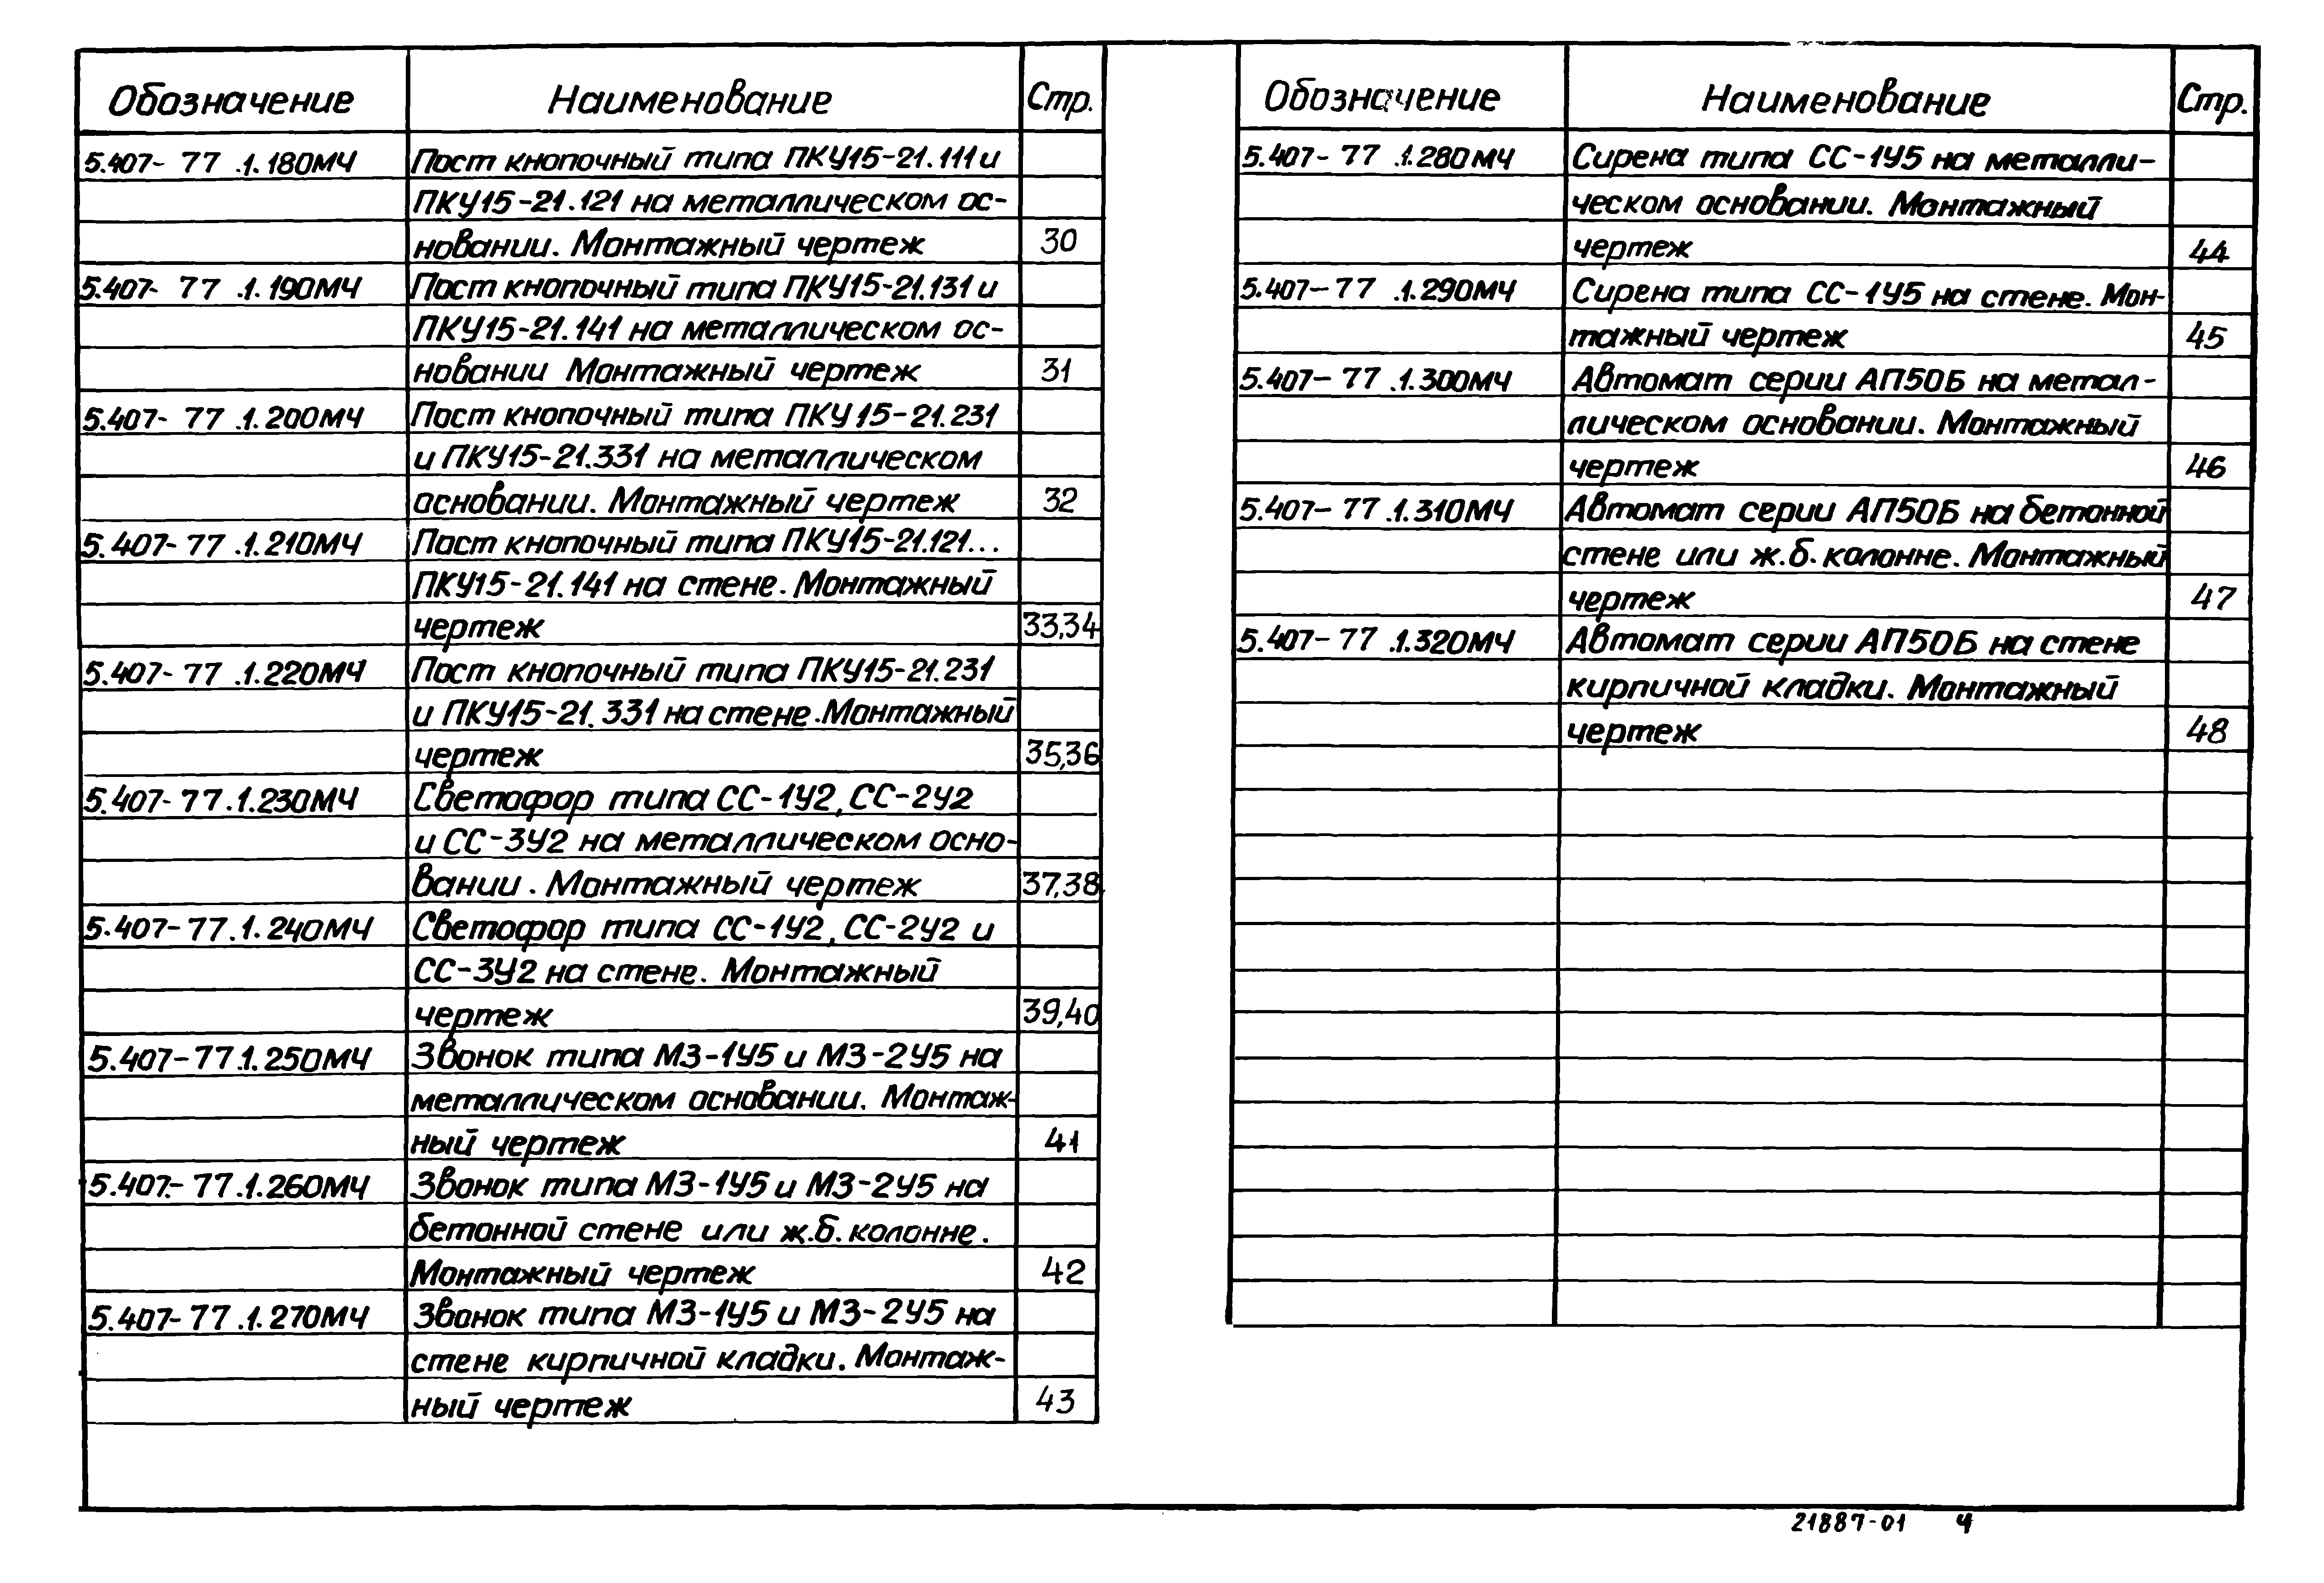 Обозначение Наименование Стр.
5.407- 77 .1.180МЧ Пост кнопочный типа ПКУ15-21.111 и
ПКУ15-21.121 на металлическом ос-
новании. Монтажный чертеж 30
5.407- 77 .1.190МЧ Пост кнопочный типа ПКУ15-21.131 и
ПКУ15-21.141 на металлическом ос-
новании Монтажный чертеж 31
5.407- 77 .1.200МЧ Пост кнопочный типа ПКУ15-21.231
и ПКУ15-21.331 на металлическом
основании. Монтажный чертеж 32
5.407-77.1.210МЧ Пост кнопочный типа ПКУ15-21.121...
ПКУ15-21.141 на стене. Монтажный
чертеж 33,34
5.407-77.1.220МЧ Пост кнопочный типа ПКУ15-21.231
и ПКУ15-21.331 на стене. Монтажный
чертеж 35,36
5.407-77.1.230МЧ Светофор типа СС-1У2, СС-2У2
и СС-3У2 на металлическом осно-
вании. Монтажный чертеж 37,38
5.407-77.1.240МЧ Светофор типа СС-1У2, СС-2У2 и
СС-3У2 на стене. Монтажный
чертеж 39,40
5.407-77.1.250МЧ Звонок типа МЗ-1У5 и МЗ-2У5 на
металлическом основании. Монтаж-
ный чертеж 41
5.407-77.1.260МЧ Звонок типа МЗ-1У5 и МЗ-2У5 на
бетонной стене или ж.б. колонне.
Монтажный чертеж 42
5.407-77.1.270МЧ Звонок типа МЗ-1У5 и МЗ-2У5 на
стене кирпичной кладки. Монтаж-
ный чертеж 43
Обозначение Наименование Стр.
5.407- 77 .1.280МЧ Сирена типа СС-1У5 на металли-
ческом основании. Монтажный
чертеж 44
5.407-77 .1.290МЧ Сирена типа СС-1У5 на стене. Мон-
тажный чертеж 45
5.407-77 .1.300МЧ Автомат серии АП50Б на метал-
лическом основании. Монтажный
чертеж 46
5.407-77.1.310МЧ Автомат серии АП50Б на бетонной
стене или ж.б. колонне. Монтажный
чертеж 47
5.407-77 .1.320МЧ Автомат серии АП50Б на стене
кирпичной кладки. Монтажный
чертеж 48
21887-01 4